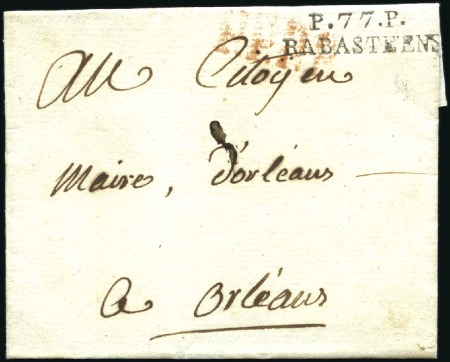 P.77.P.
RABASTEENS
Au Citoyen
Maire, d'orléans
a orléans